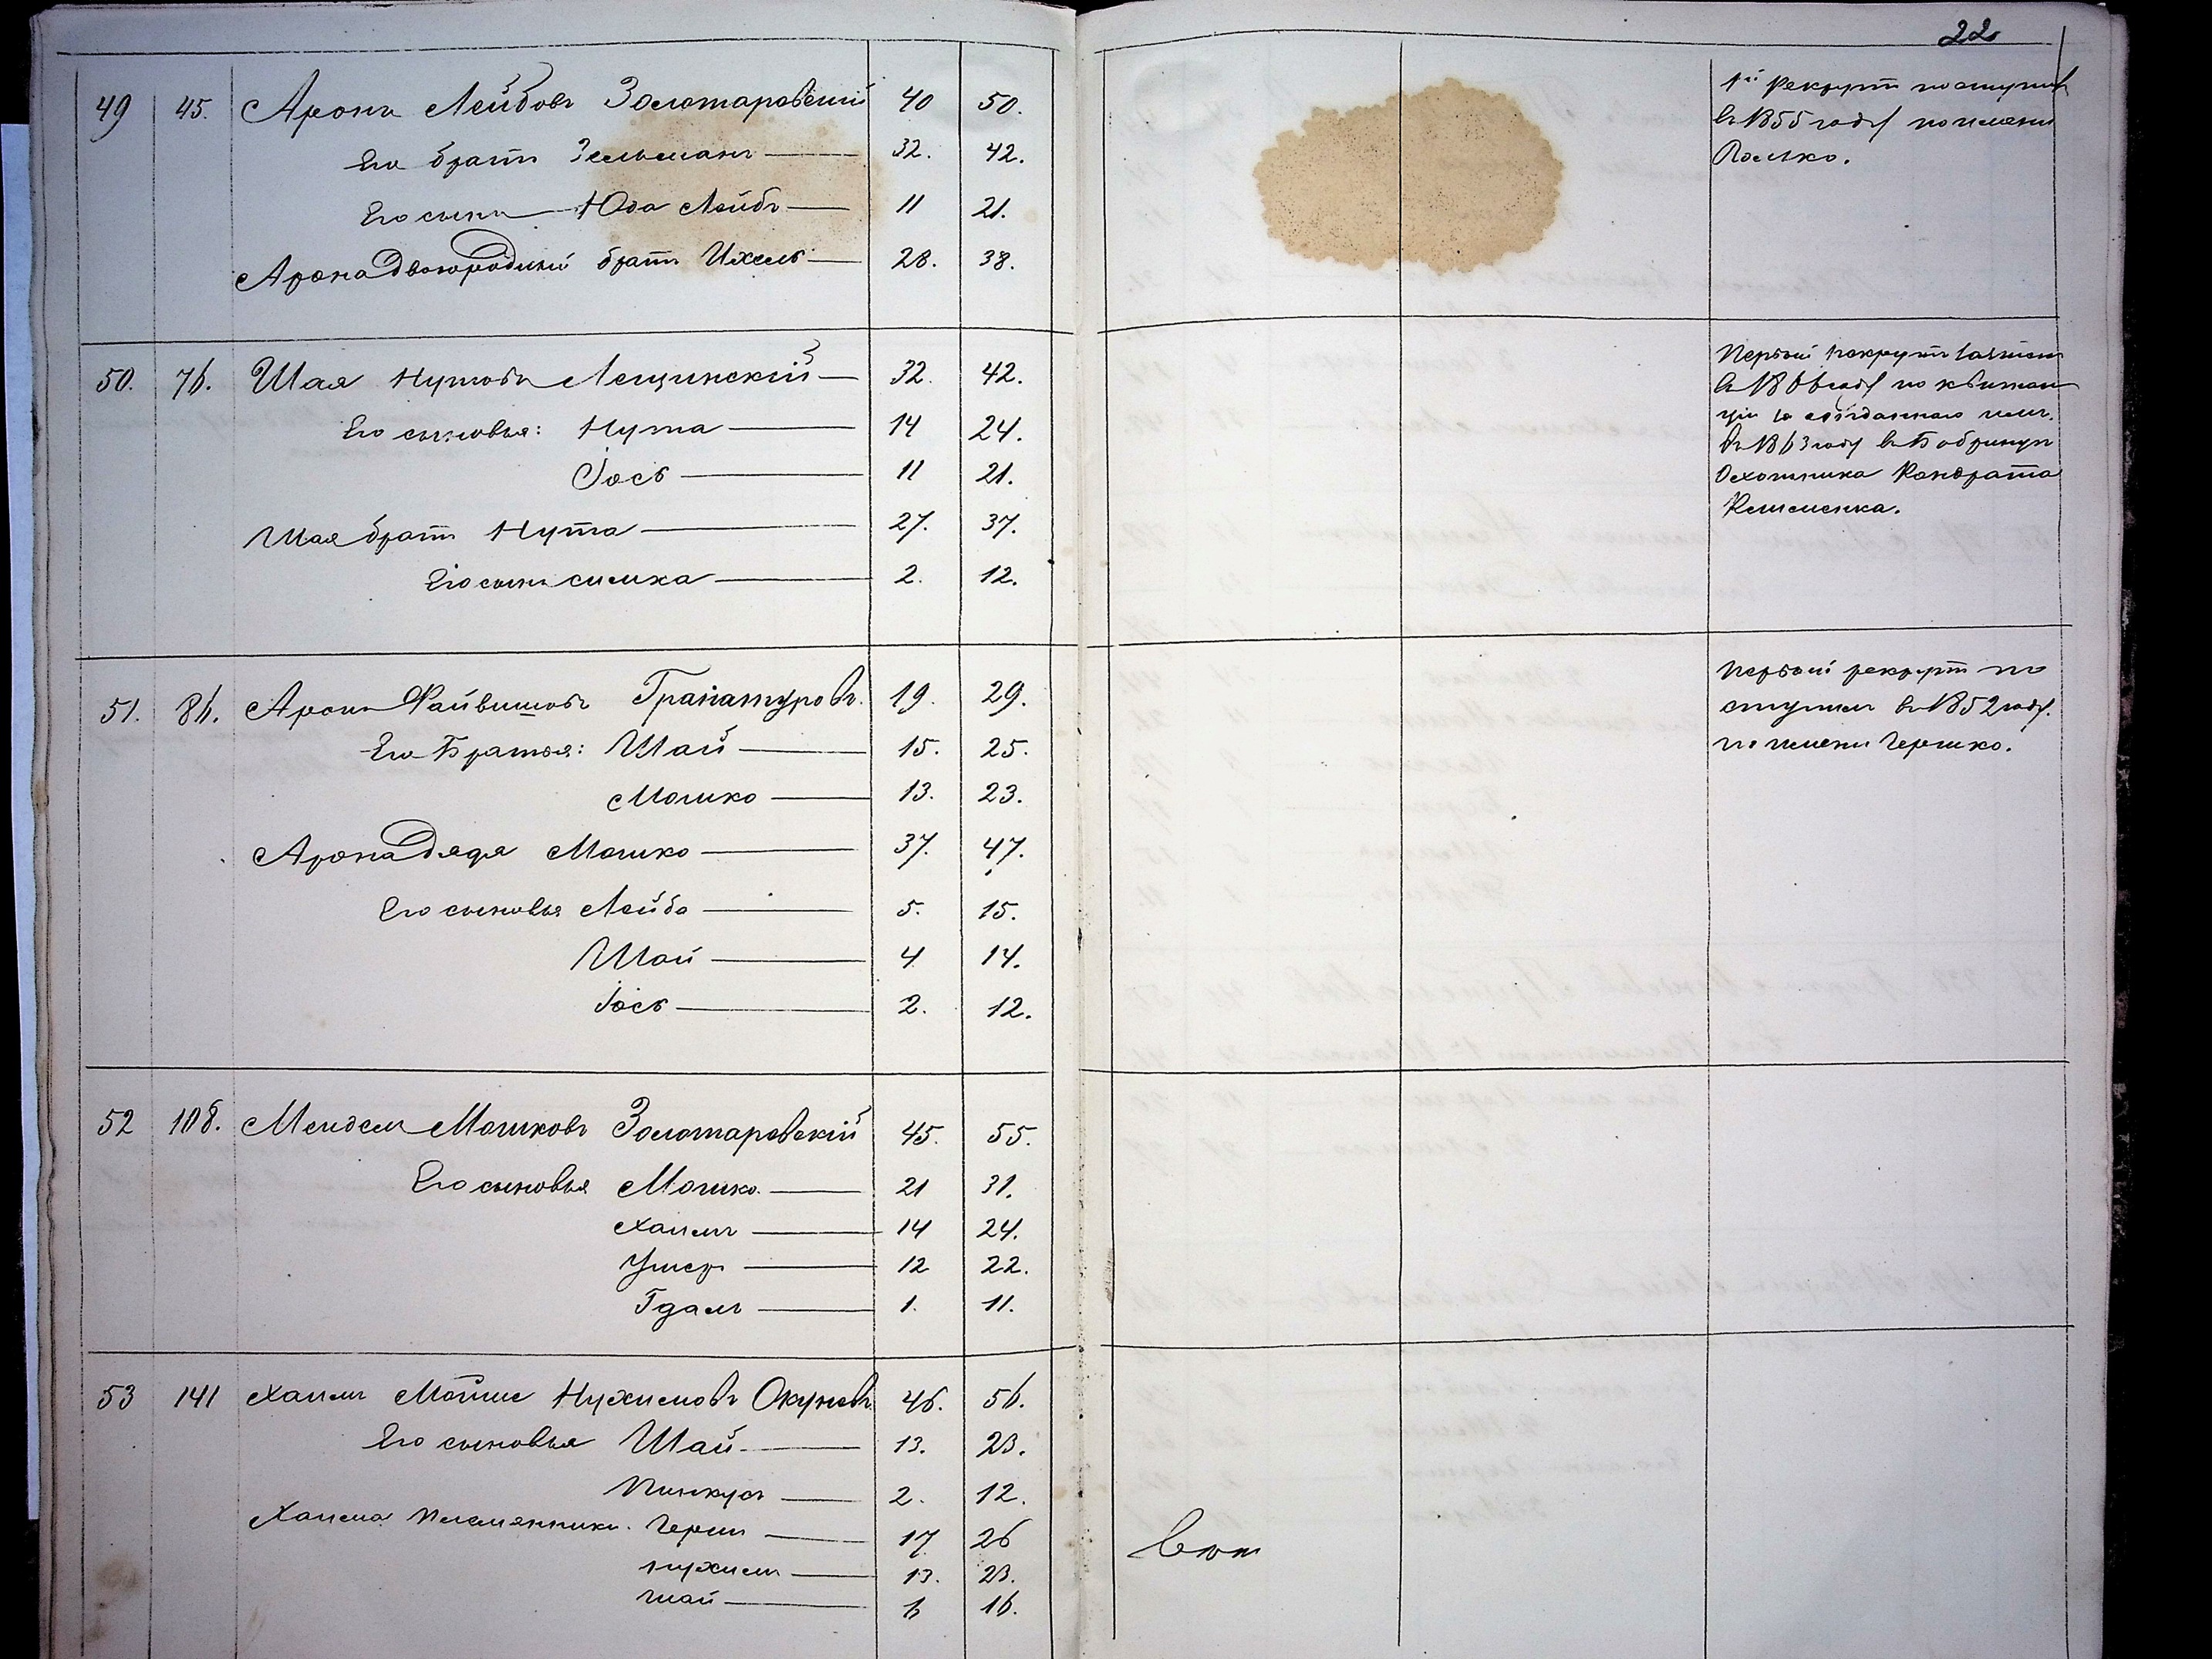 22
49 45. Аронъ Лейбовъ Золотаревскій 40 50.
Его братъ Зельманъ 32. 42.
Его сынъ Юда Лейбъ 11 21.
Арона двоюродный братъ Ихель 28. 38.
1й Рекрутъ поступилъ
въ 1855 году по имени
50. 76. Шая Нутовъ Лещинскій 32. 42.
Его сыновья: Нута 14 24.
Іось 11 21.
Шая братъ Нута 27. 37.
Его сынъ Симха 2. 12.
Первый рекрутъ
въ 1866 году по квитан
ціи за
въ 1863 году въ Бобринцѣ
Охотника Кондрата
51. 86. Аронъ Файвишовъ 19. 29.
Его Братья: Шай 15. 25.
Мошко 13. 23.
Арона дядя Мошко 37. 47.
Его сыновья Лейба 5. 15.
Шай 4 14.
Іось 2. 12.
Первый рекрутъ по
ступилъ въ 1852 году.
по имени Гершко.
52 108. Мендель Мошковъ Золотаревскій 45. 55.
Его сыновья Мошко 21 31.
Хаимъ 14 24.
Ушеръ 12 22.
Гдаль 1. 11.
53 141 Хаимъ Мойше Нухимовъ Окуневъ 46. 56.
Его сыновья Шай 13. 23.
Пинкусъ 2. 12.
Хаима Племянники Герш 17 26
Нухимъ 13. 23.
Шай 6 16.